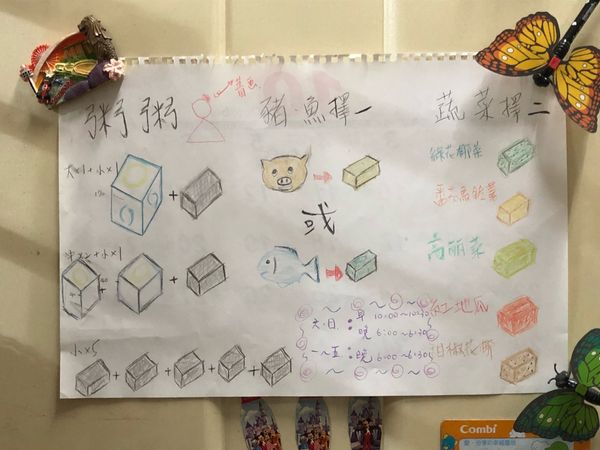 粥粥
豬.魚擇一
蔬菜擇二
大×1+小×1
+
綠花椰菜
或
高麗菜
中×2+小×1
+
紅地瓜
六.日:早 10:00~10:30
晚 6:00~6:30
一~五:晚 6:00~6:30
小×5
+ + + +
Combi